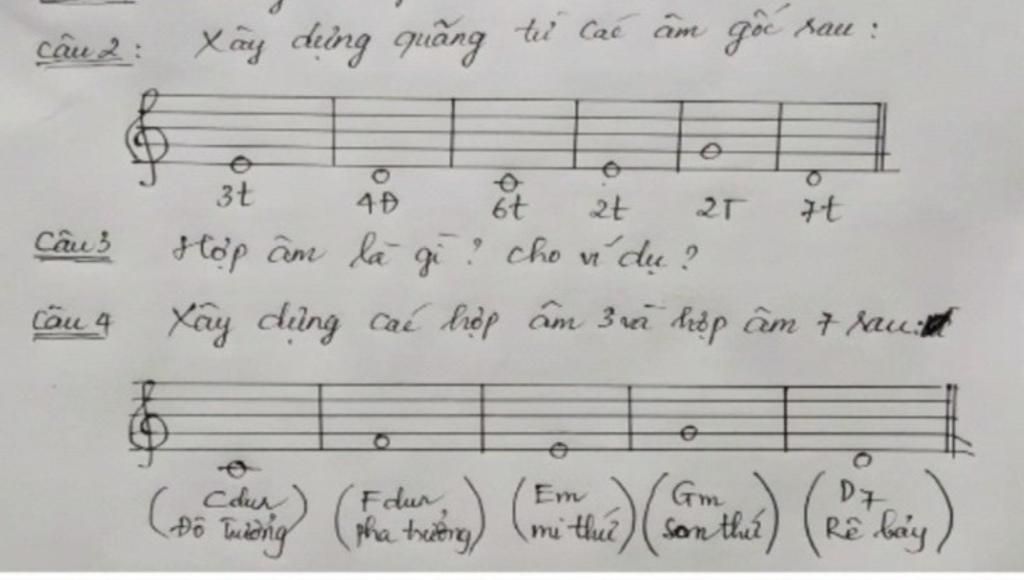 Câu 2: Xây dựng quãng từ các âm gốc sau:
3t 4Đ 6t 2t 2T 7t
Câu 3 Hợp âm là gì? cho ví dụ?
Câu 4 Xây dựng các hợp âm 3 và hợp âm 7 sau:
(Cdur (Fdur (Em (Gm (D7
Đô Trưởng) pha trưởng) mi thứ) son thứ) Rê bảy)